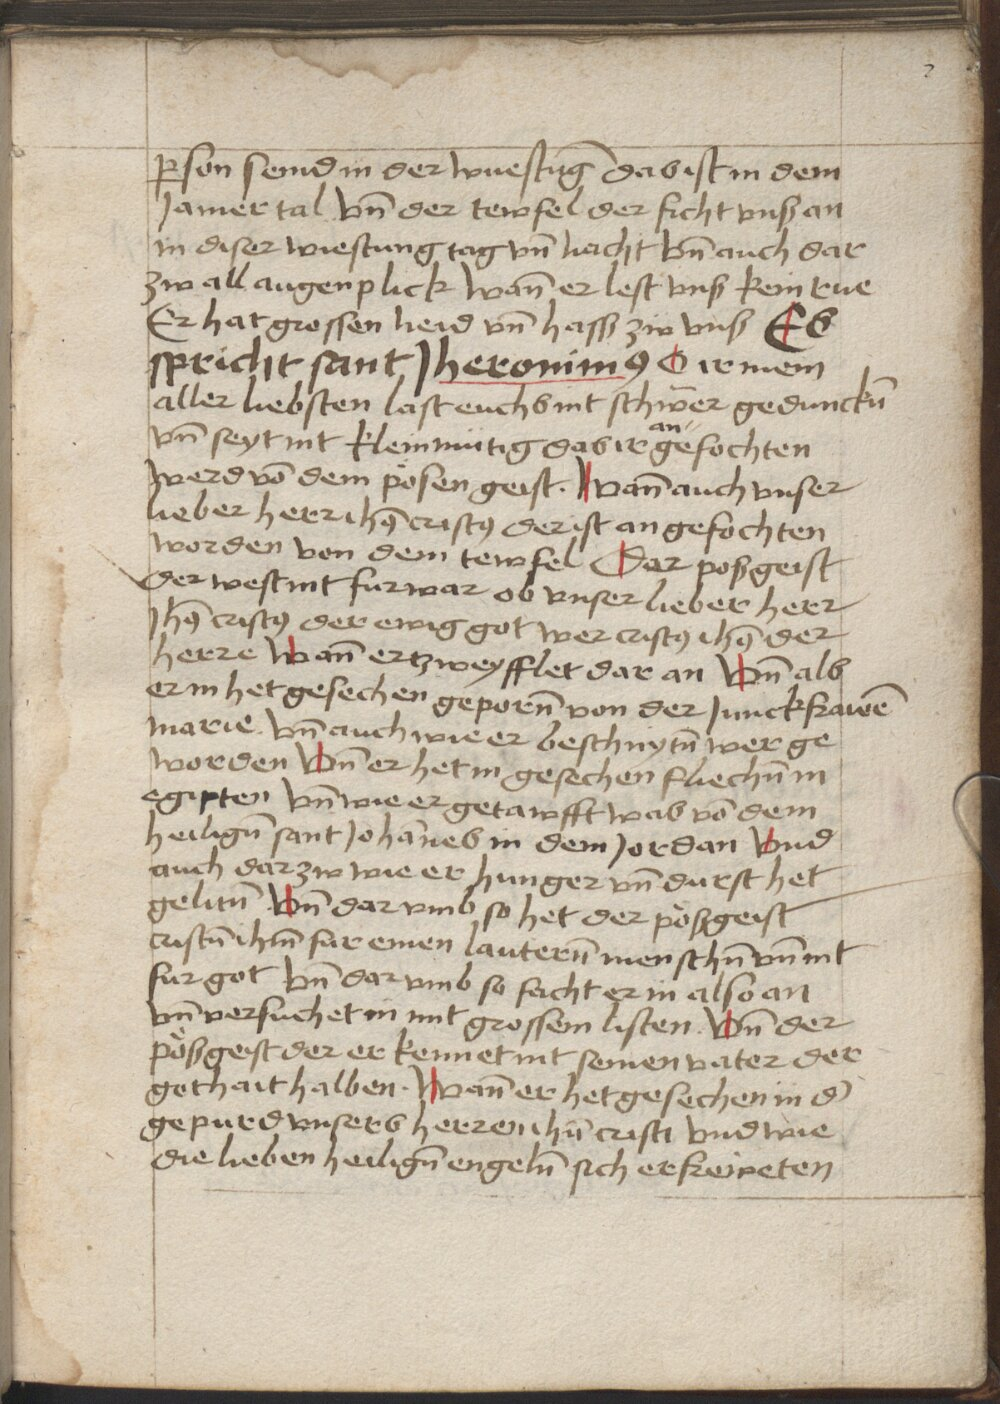 2
ꝑson seind in der wuestūg das ist in dem
Jamertal Vn̄ der tewfel der ficht vnß an
in diser wiestung tag vn̄ nacht Vn̄ auch dar
zw all augenplick Wan̄ er lest vnß kein rue
Er hat grossen neid vn̄ hass zw vnß Es
spricht sant Jheronimꝯ O ir mein
aller liebsten last euchs nit schwer gedunckn̄
vn̄ seyt nit kleinmütig das ir an gefochten
werd võ dem pösen geist. Wan̄ auch vnser
lieber herr ihs̄ cristꝯ der ist an gefochten
worden von dem tewfel Dar poßgeist
der west nit fur war ob vnser lieber herr
Jhs̄ cristꝯ der ewig got wer cristꝯ ihs̄ der
herre Wan̄ er tzweyfflet dar an Vn̄ als
er in het gesechen geporn̄ von der Junckfrawē
marie Vn̄ auch wie er beschnytn̄ wer ge
worden Vn̄ er het in gesechen fliechn̄ in
egipten Vn̄ wie er getawfft was võ dem
heilign̄ sant Johānes in dem Jordan Vnd
auch darzw wie er hunger vn̄ durst het
gelitn̄ Vn̄ dar vmb so het der pößgeist
cristn̄ ihm̄ fur einen lautern̄ menschn̄ vn̄ nit
fur got Vn̄ dar vmb so facht er in also an
vn̄ versuchet in mit grossem listen. Vn̄ der
pößgeist der erkennet nit seinen vater der
gothait halben. Wan̄ er het gesechen in d̄
gepurd vnsers herren ihū cristi vnd wie
die lieben heilign̄ engeln̄ sich erfreweten